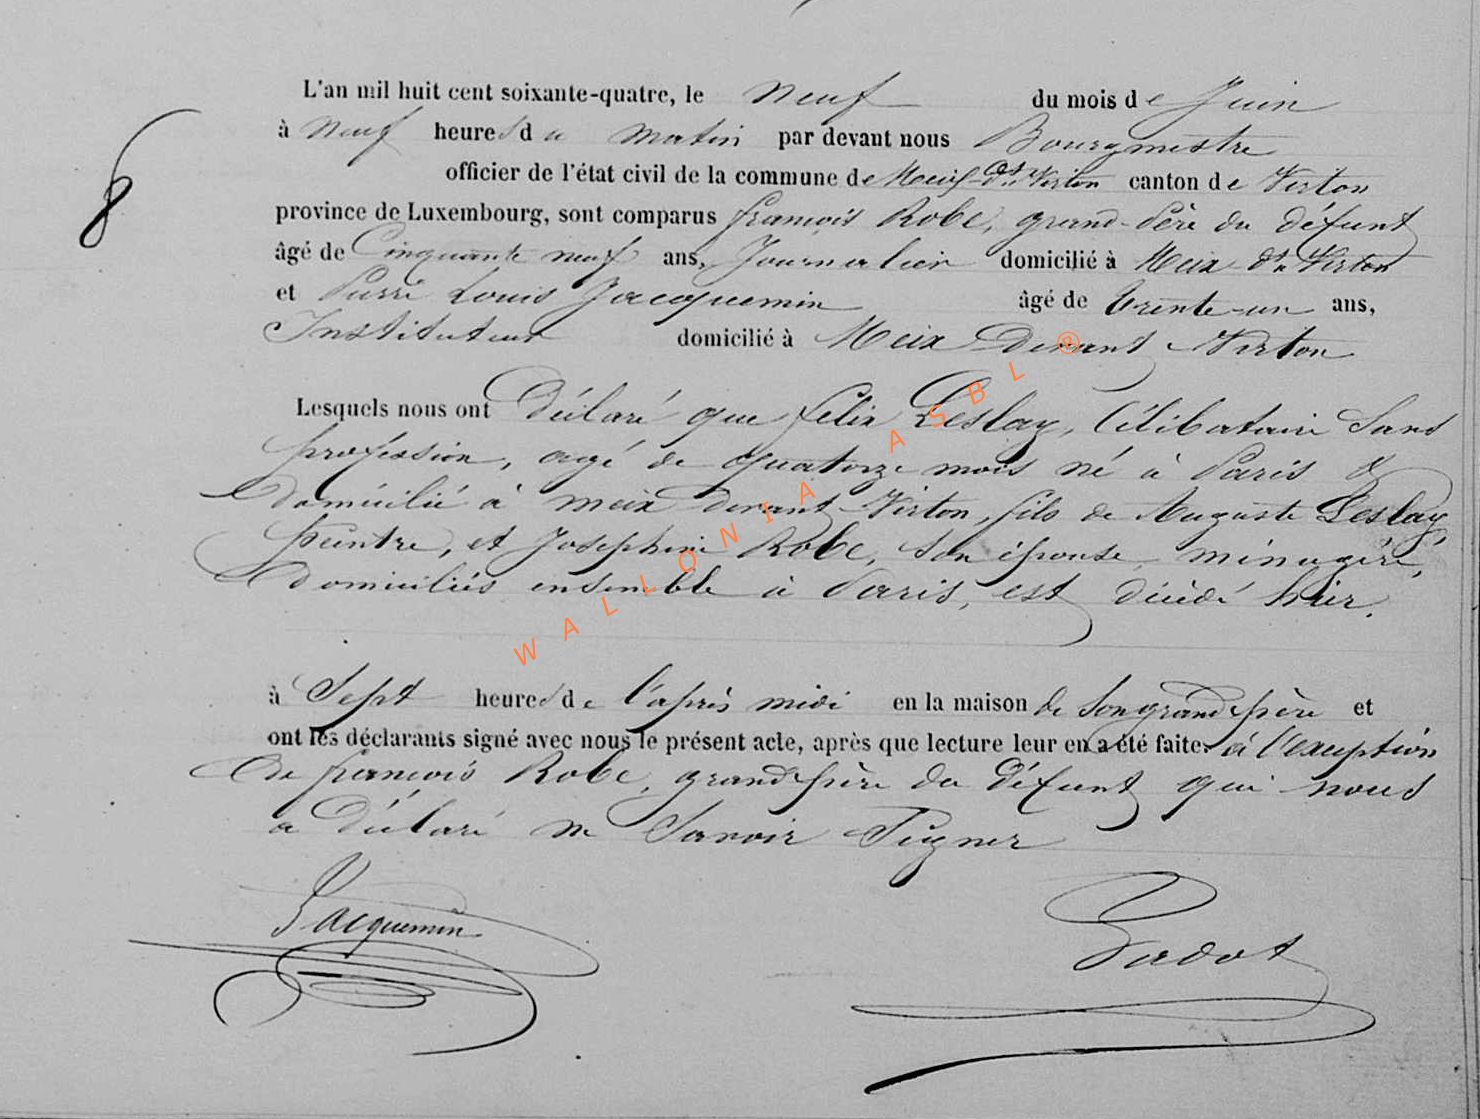 L'an mil huit cent soixante-quatre, le neuf du mois de Juin
à neuf heures du matin par devant nous Bourgmestre
officier de l'état civil de la commune de Meix-dt Virton canton de Virton
province de Luxembourg, sont comparus françois Robe, grand-Père du défunt
âgé de Cinquante neuf ans, Journalier domicilié à Meix dt Virton
et Pierre Louis Jacquemin âgé de trente-un ans,
Instituteur domicilié à Meix Devant Virton
Lesquels nous ont Déclaré que felix Leslay, Célibataire Sans
profession, agé de quatorze mois né à Paris &
domicilié à meix devant-Virton, fils de Auguste Leslay,
peintre, et Josephine Robe, Son épouse, ménagère,
domiciliés ensemble à Paris, est décédé hier,
à Sept heures de l'après midi en la maison de Son grand père et
ont les déclarants signé avec nous le présent acte, après que lecture leur en a été faite. à l'exception
de françois Robe, grand père du défunt qui nous
a Déclaré ne Savoir Signer
Jacquemin
Padot
8
WALLONIA ASBL ®